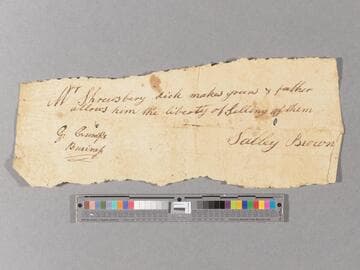 Mr Shrewsbery dick makes yours & father
allows him the liberty of Selling of them
Salley Brown